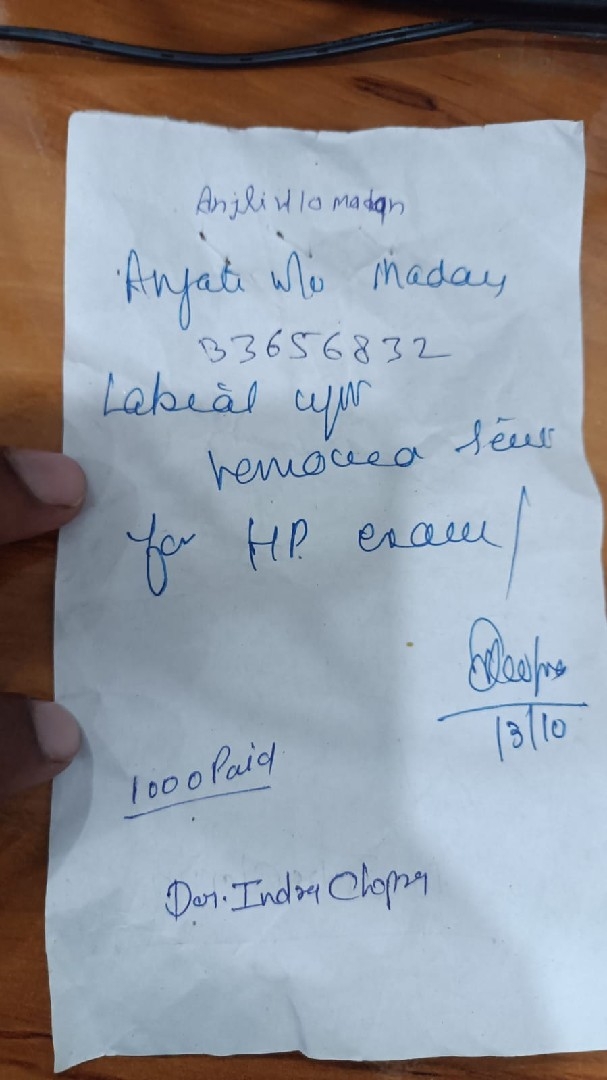 Anjli W/o madan
Anjali W/o Madan
33656832
Labial cyst
removed sent
for HP. exam/
13/10
1000 Paid
Dr. Indra Chopra